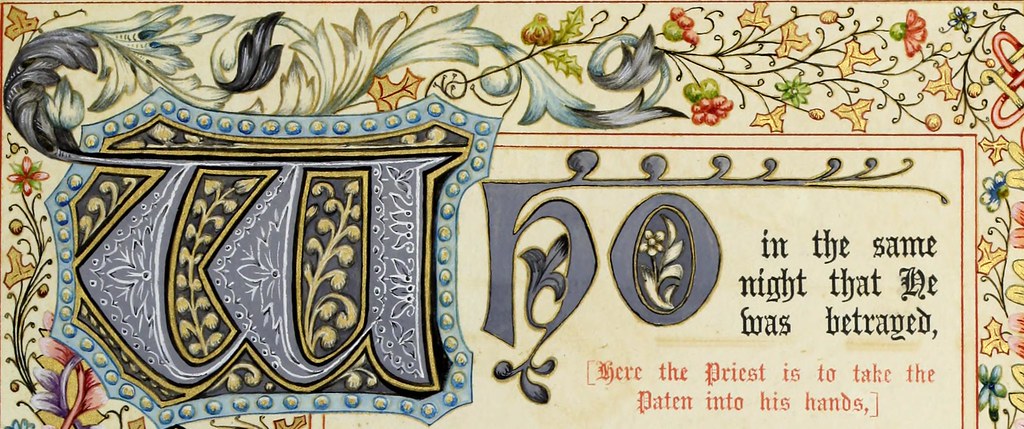 Who
in the same
night that He
was betrayed,
[Here the Priest is to take the
Paten into his hands,]